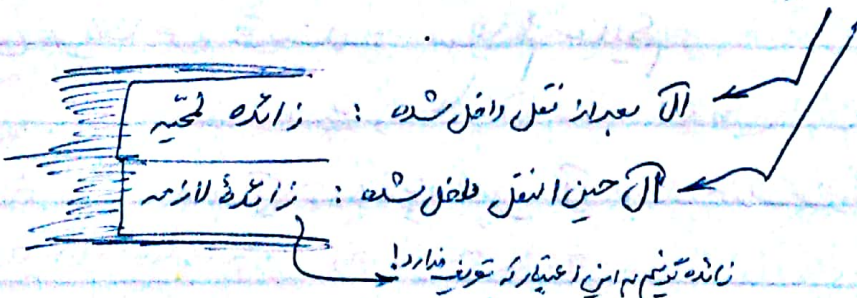 ال بعد از نقل داخل شده : زائده لمحیّه
ال حین النقل داخل شده : زائدهٔ لازمه
زائده گوئیم به این اعتبار که تعریف ندارد!